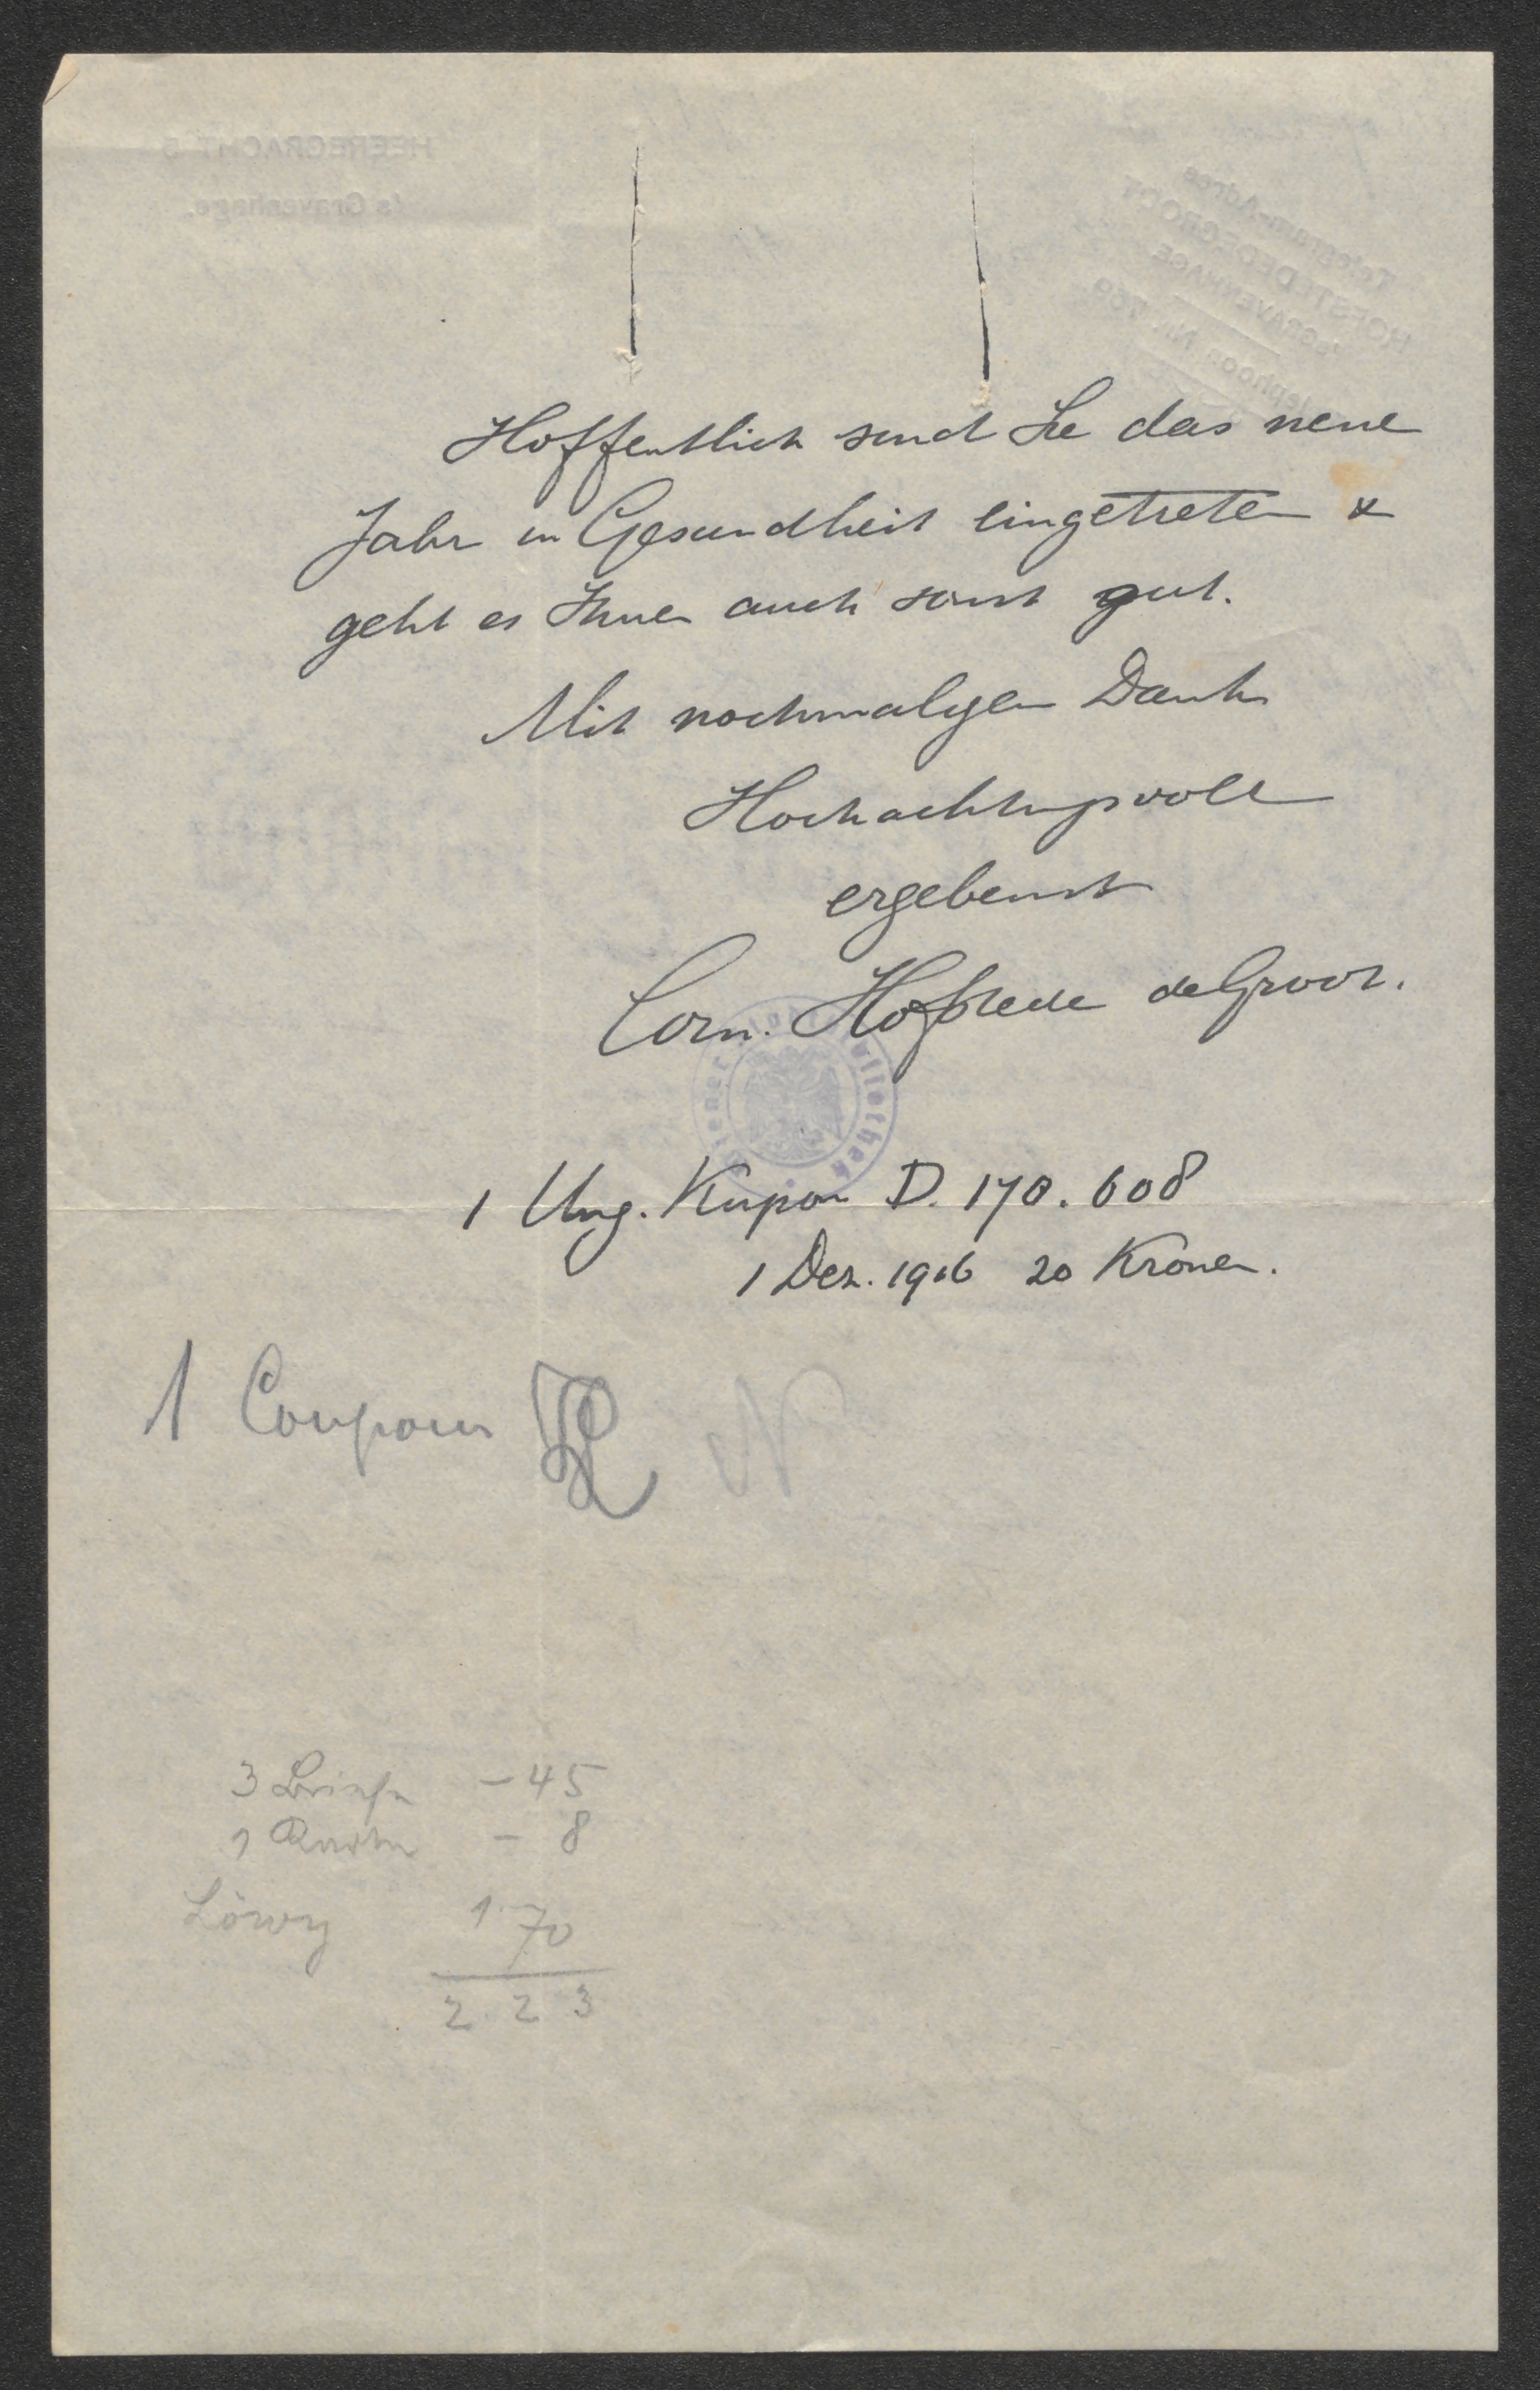 Hoffentlich sind Sie das neue
Jahr in Gesundheit eingetreten &
geht es Ihnen auch sonst gut.
Mit nochmaligem Dank
Hochachtungsvoll
ergebenst
Corn. Hofstede de Groot.
1 Ung. Kupon D. 170.608
1 Dez. 1916 20 Kronen.
1 Coupon
3 Briefe - 45
1 Karte - 8
Löwy 1 70
2 2 3